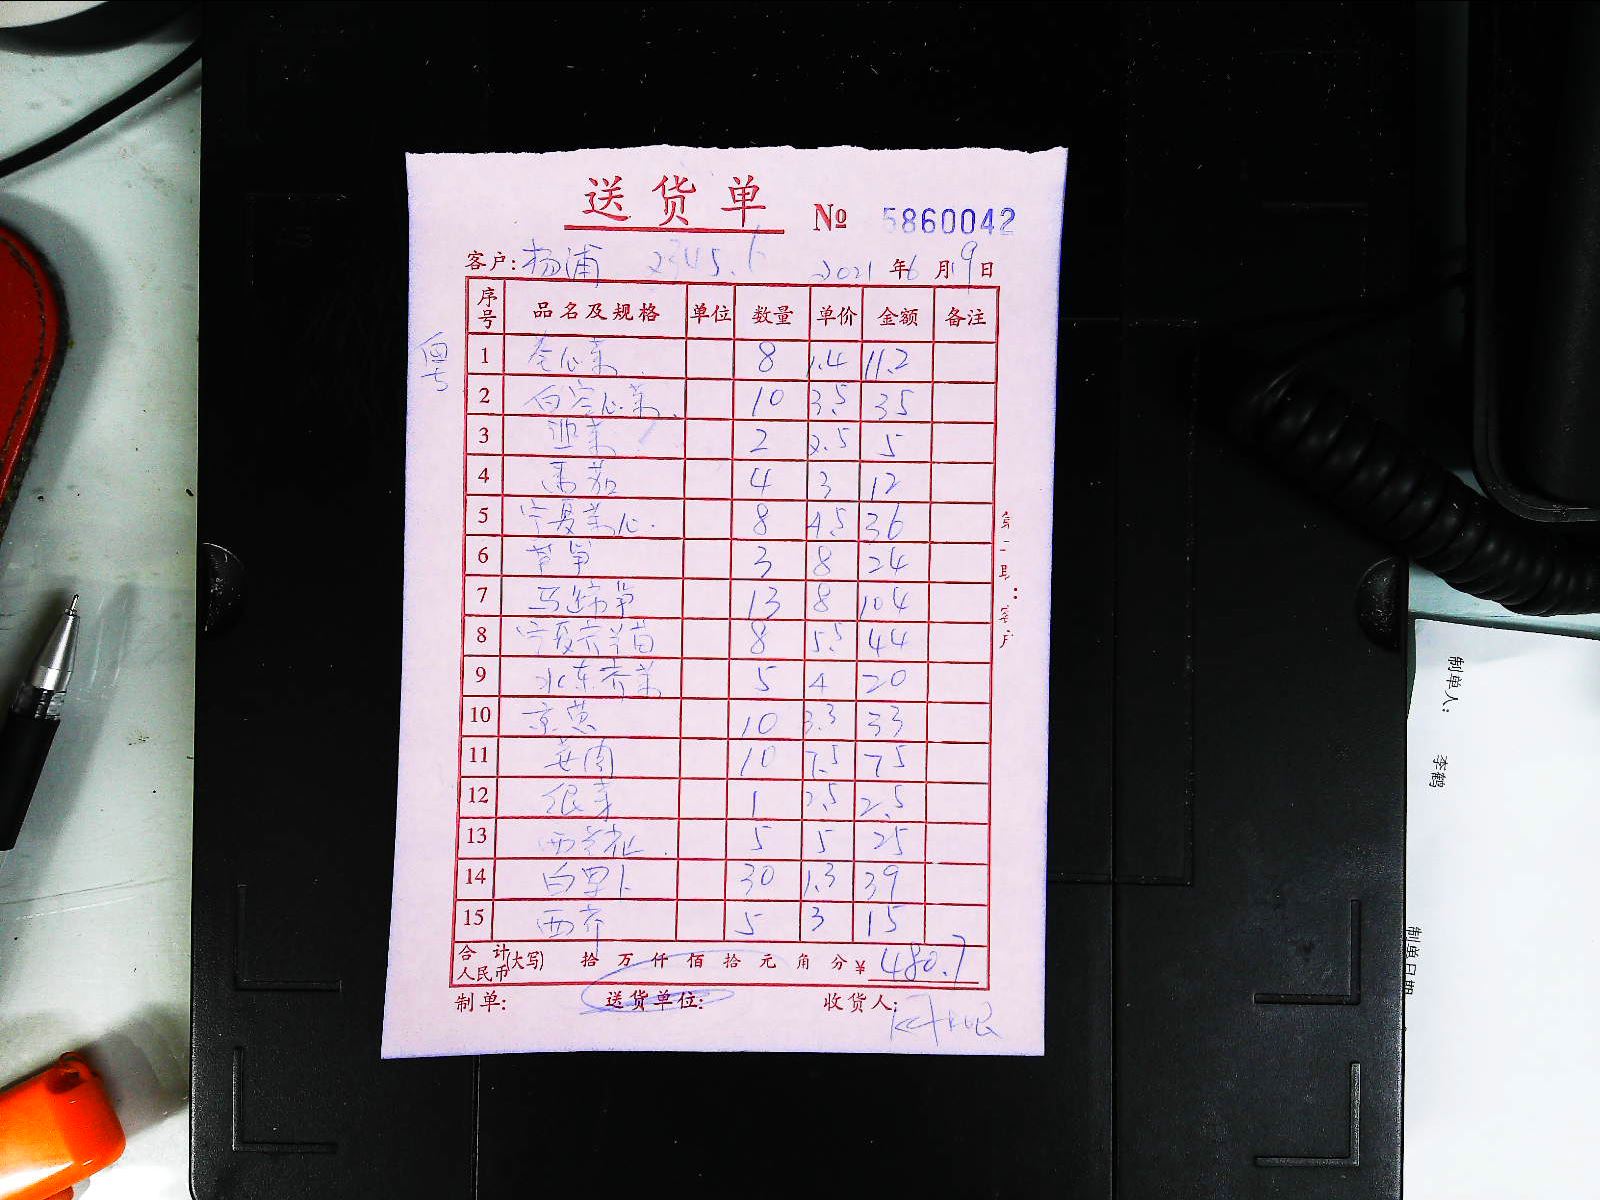 送货单 № 5860042
客户: 杨浦 2345.6 2021 年 6 月 19 日
序号 品名及规格 单位 数量 单价 金额 备注
粤
1 8 1.4 11.2
2 白空心菜 10 3.5 35
3 韭菜 2 2.5 5
4 番茄 4 3 12
5 宁夏菜心 8 4.5 36
6 芦笋 3 8 24
7 马蹄笋 13 8 104
8 宁夏芥兰苗 8 5.5 44
9 水东芥菜 5 4 20
10 京葱 10 3.3 33
11 10 7.5 75
12 1 2.5 2.5
13 西兰花 5 5 25
14 白罗卜 30 1.3 39
15 西芹 5 3 15
合计人民币(大写) 拾 万 仟 佰 拾 元 角 分 ¥ 480.7
制单: 送货单位: 收货人:
第二联:客户
制单人: 李鹤
制单日期